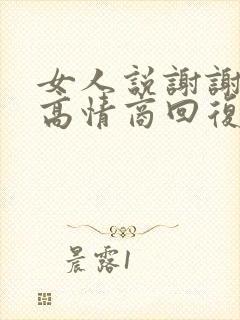 女人説謝謝
高情商回復
晨露1